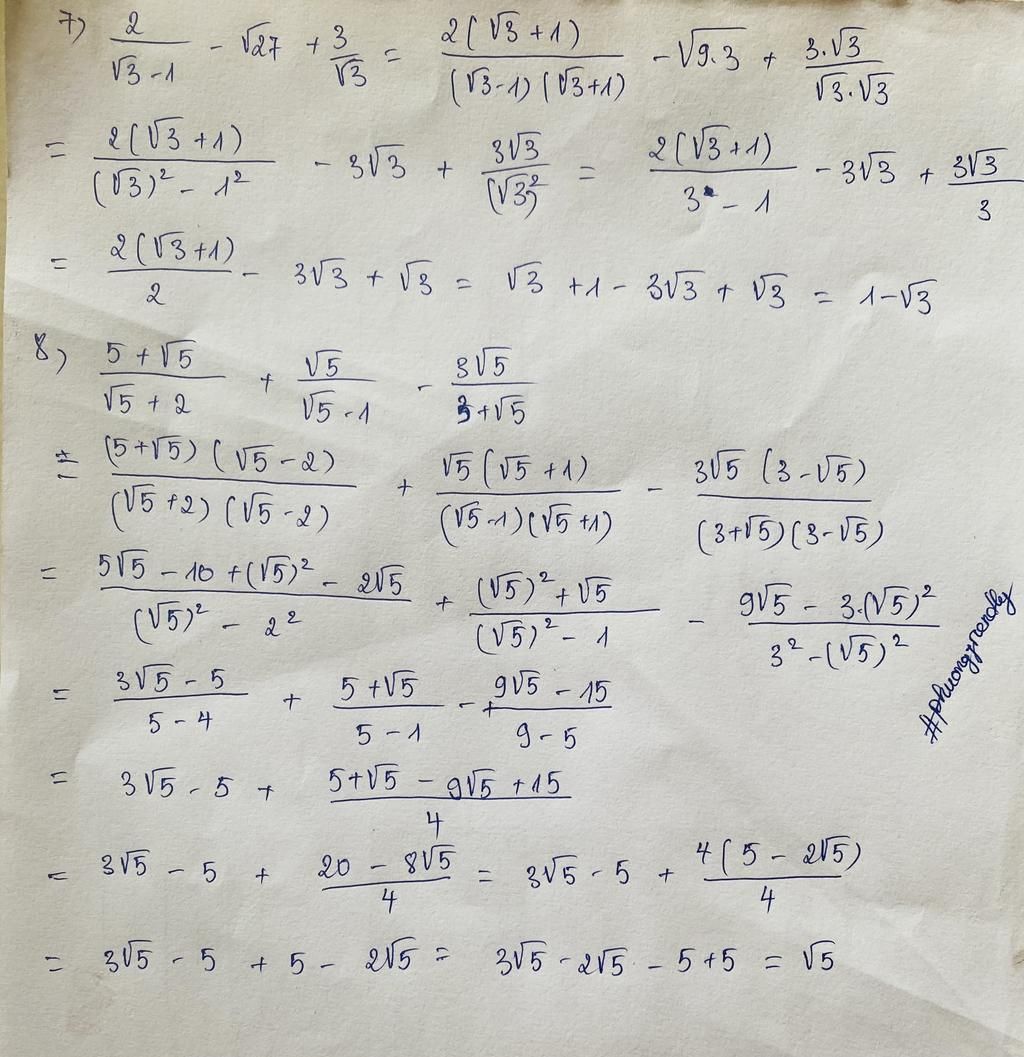 7) 2/(√3-1) - √27 + 3/√3 = 2(√3+1)/((√3-1)(√3+1)) - √9.3 + 3.√3/(√3.√3)
= 2(√3+1)/((√3)² - 1²) - 3√3 + 3√3/(√3)² = 2(√3+1)/(3 - 1) - 3√3 + 3√3/3
= 2(√3+1)/2 - 3√3 + √3 = √3 + 1 - 3√3 + √3 = 1-√3
8) (5+√5)/(√5+2) + √5/(√5-1) - 3√5/(3+√5)
= (5+√5)(√5-2)/((√5+2)(√5-2)) + √5(√5+1)/((√5-1)(√5+1)) - 3√5(3-√5)/((3+√5)(3-√5))
= (5√5 - 10 + (√5)² - 2√5)/((√5)² - 2²) + ((√5)²+√5)/((√5)² - 1) - (9√5 - 3.(√5)²)/(3² - (√5)²)
= (3√5 - 5)/(5 - 4) + (5+√5)/(5 - 1) - (9√5 - 15)/(9 - 5)
= 3√5 - 5 + (5+√5 - 9√5 + 15)/4
= 3√5 - 5 + (20 - 8√5)/4 = 3√5 - 5 + 4(5 - 2√5)/4
= 3√5 - 5 + 5 - 2√5 = 3√5 - 2√5 - 5 + 5 = √5